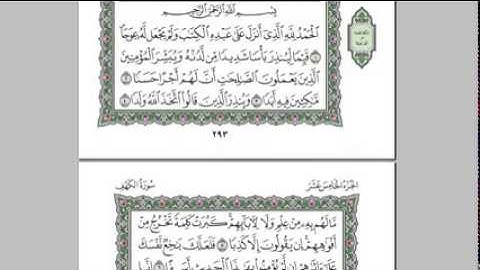 بِسْمِ اللَّهِ الرَّحْمَٰنِ الرَّحِيمِ
الْحَمْدُ لِلَّهِ الَّذِي أَنزَلَ عَلَىٰ عَبْدِهِ الْكِتَابَ وَلَمْ يَجْعَل لَّهُ عِوَجًا
۝١ قَيِّمًا لِّيُنذِرَ بَأْسًا شَدِيدًا مِّن لَّدُنْهُ وَيُبَشِّرَ الْمُؤْمِنِينَ
الَّذِينَ يَعْمَلُونَ الصَّالِحَاتِ أَنَّ لَهُمْ أَجْرًا حَسَنًا
۝٢ مَّاكِثِينَ فِيهِ أَبَدًا ۝٣ وَيُنذِرَ الَّذِينَ قَالُوا اتَّخَذَ اللَّهُ وَلَدًا ۝٤
٢٩٣
الجُزْءُ الخَامِسَ عَشَرَ
سُورَةُ الكَهْفِ
مَّا لَهُم بِهِ مِنْ عِلْمٍ وَلَا لِآبَائِهِمْ كَبُرَتْ كَلِمَةً تَخْرُجُ مِنْ
أَفْوَاهِهِمْ إِن يَقُولُونَ إِلَّا كَذِبًا ۝٥ فَلَعَلَّكَ بَاخِعٌ نَّفْسَكَ